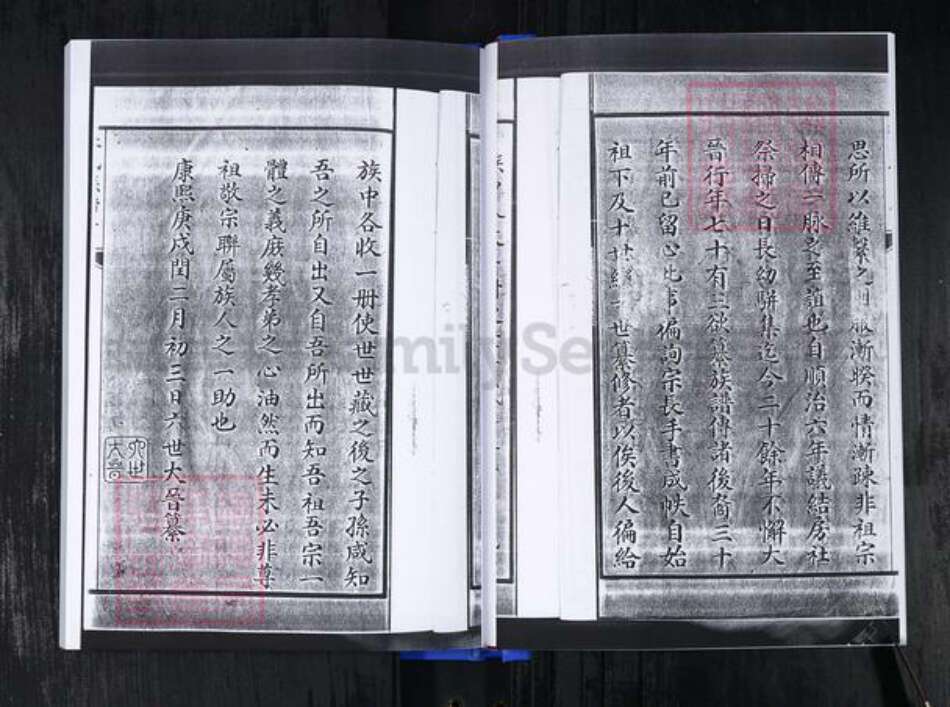 思所以維繫之則服漸睽而情漸疎非祖宗
相傳一脉之至誼也自順治六年議結房社
祭掃之日長幼駢集迄今二十餘年不懈大
晉行年七十有三欲纂族譜傳諸後裔三十
年前已留心此事徧詢宗長手書成帙自始
祖下及十世纂修者以俟後人徧給
族中各收一册使世世藏之後之子孫咸知
吾之所自出又自吾所出而知吾祖吾宗一
體之義庶幾孝弟之心油然而生未必非尊
祖敬宗聯屬族人之一助也
康熙庚戌閏二月初三日六世大晉纂
六世
大晉
FamilySe